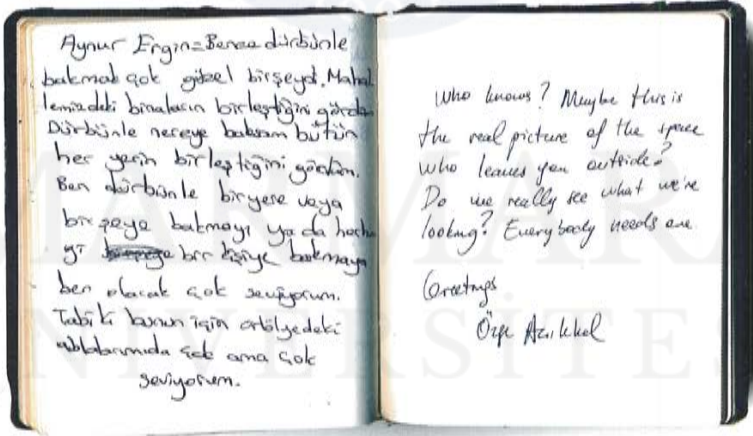 Aynur Ergin=Bence dürbünle
bakmak çok güzel birşeydi. Mahal
lemizdeki binaların birleştiğini gördüm
Dürbünle nereye baksam bütün
her yerin birleştiğini gördüm.
Ben dürbünle biryere veya
birşeye bakmayı ya da herhan
gi bir kişiye bakmaya
ben olarak çok seviyorum.
Tabi ki bunun için atölyedeki
ablalarımıda çok ama çok
seviyorum.
Who knows? Maybe this is
the real picture of the space
who leaves you outside?
Do we really see what we're
looking? Everybody needs one.
Greetings
Özge Açıkkol
MARMARA
ÜNİVERSİTESİ